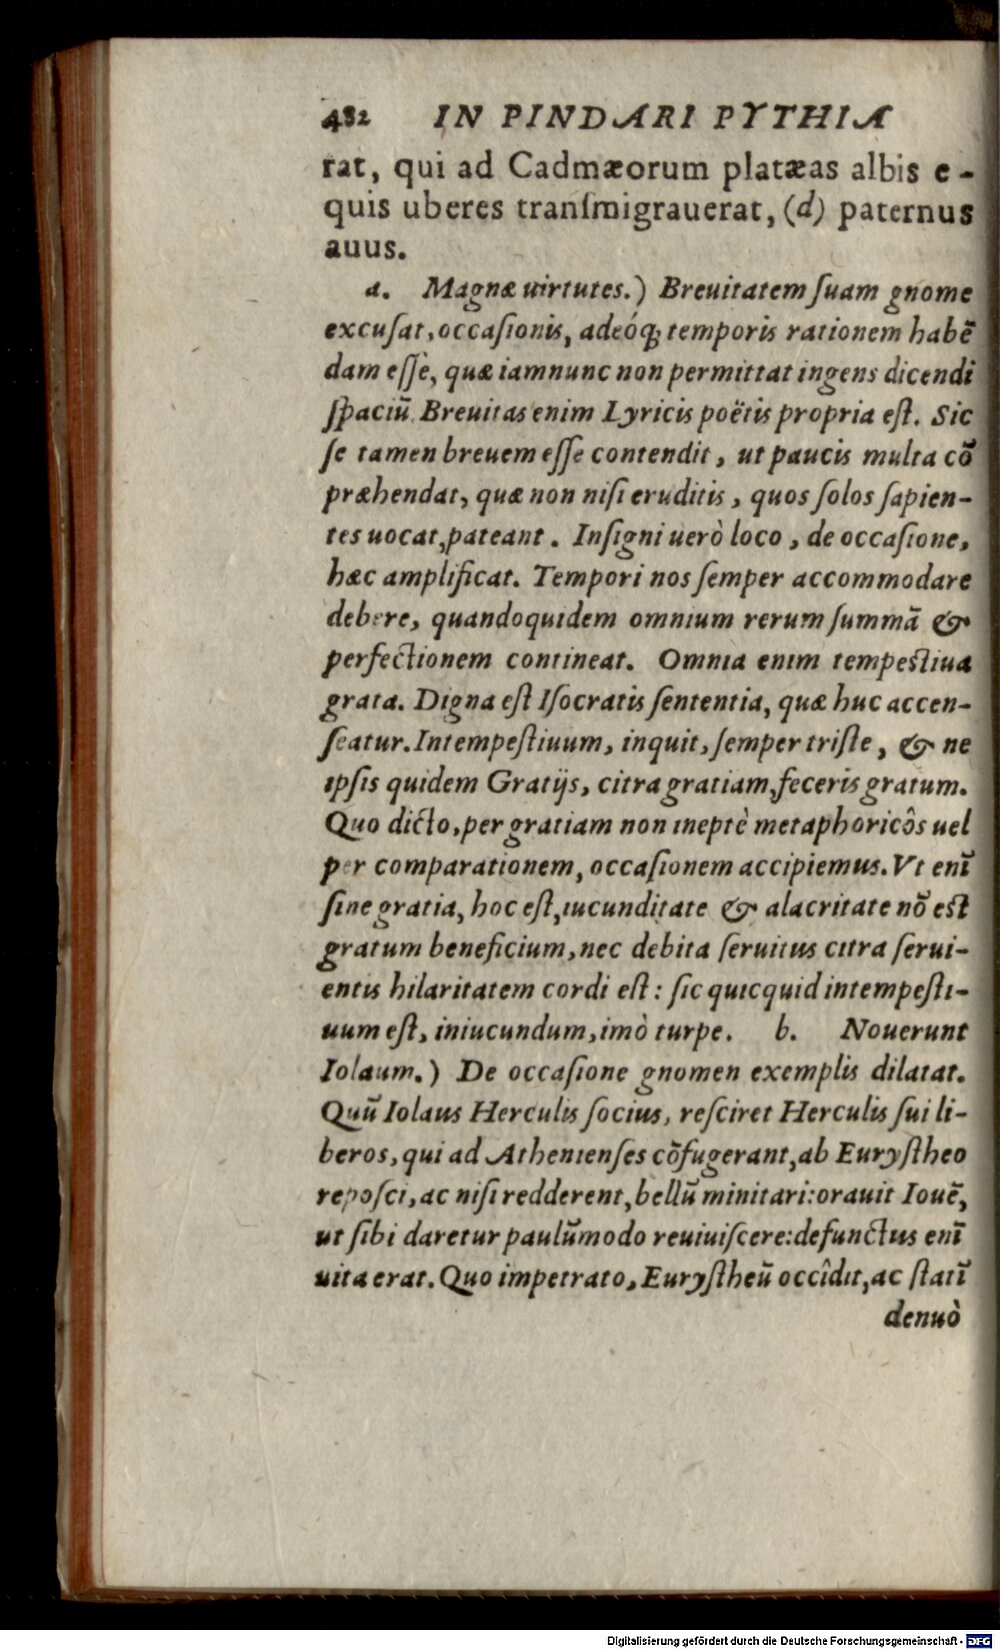 482 IN PINDARI PYTHIA
rat, qui ad Cadmæorum platæas albis e-
quis uberes tranſmigrauerat, (d) paternus
auus.
a. Magnæ uirtutes.) Breuitatem ſuam gnome
excuſat, occaſionis, adeóq; temporis rationem habē
dam eſſè, quæ iamnunc non permittat ingens dicendi
ſpaciū. Breuitas enim Lyricis poëtis propria eſt. Sic
ſe tamen breuem eſſe contendit, ut paucis multa cō
præhendat, quæ non niſi eruditis, quos ſolos ſapien-
tes uocat, pateant. Inſigni uerò loco, de occaſione,
hæc amplificat. Tempori nos ſemper accommodare
debere, quandoquidem omnium rerum ſummā &
perfectionem contineat. Omnia enim tempeſtiua
grata. Digna eſt Iſocratis ſententia, quæ huc accen-
ſeatur. Intempeſtiuum, inquit, ſemper triſte, & ne
ipſis quidem Gratijs, citra gratiam, feceris gratum.
Quo dicto, per gratiam non ineptè metaphoricôs uel
per comparationem, occaſionem accipiemus. Vt enī
ſine gratia, hoc eſt, iucunditate & alacritate nō eſt
gratum beneficium, nec debita ſeruitus citra ſerui-
entis hilaritatem cordi eſt: ſic quicquid intempeſti-
uum eſt, iniucundum, imò turpe. b. Nouerunt
Iolaum.) De occaſione gnomen exemplis dilatat.
Quū Iolaus Herculis ſocius, reſciret Herculis ſui li-
beros, qui ad Athenienſes cōfugerant, ab Euryſtheo
repoſci, ac niſi redderent, bellū minitari: orauit Iouē,
ut ſibi daretur paulūmodo reuiuiſcere: defunctus enī
uita erat. Quo impetrato, Euryſtheū occîdit, ac ſtatī
denuò
Digitalisierung gefördert durch die Deutsche Forschungsgemeinschaft - DFG